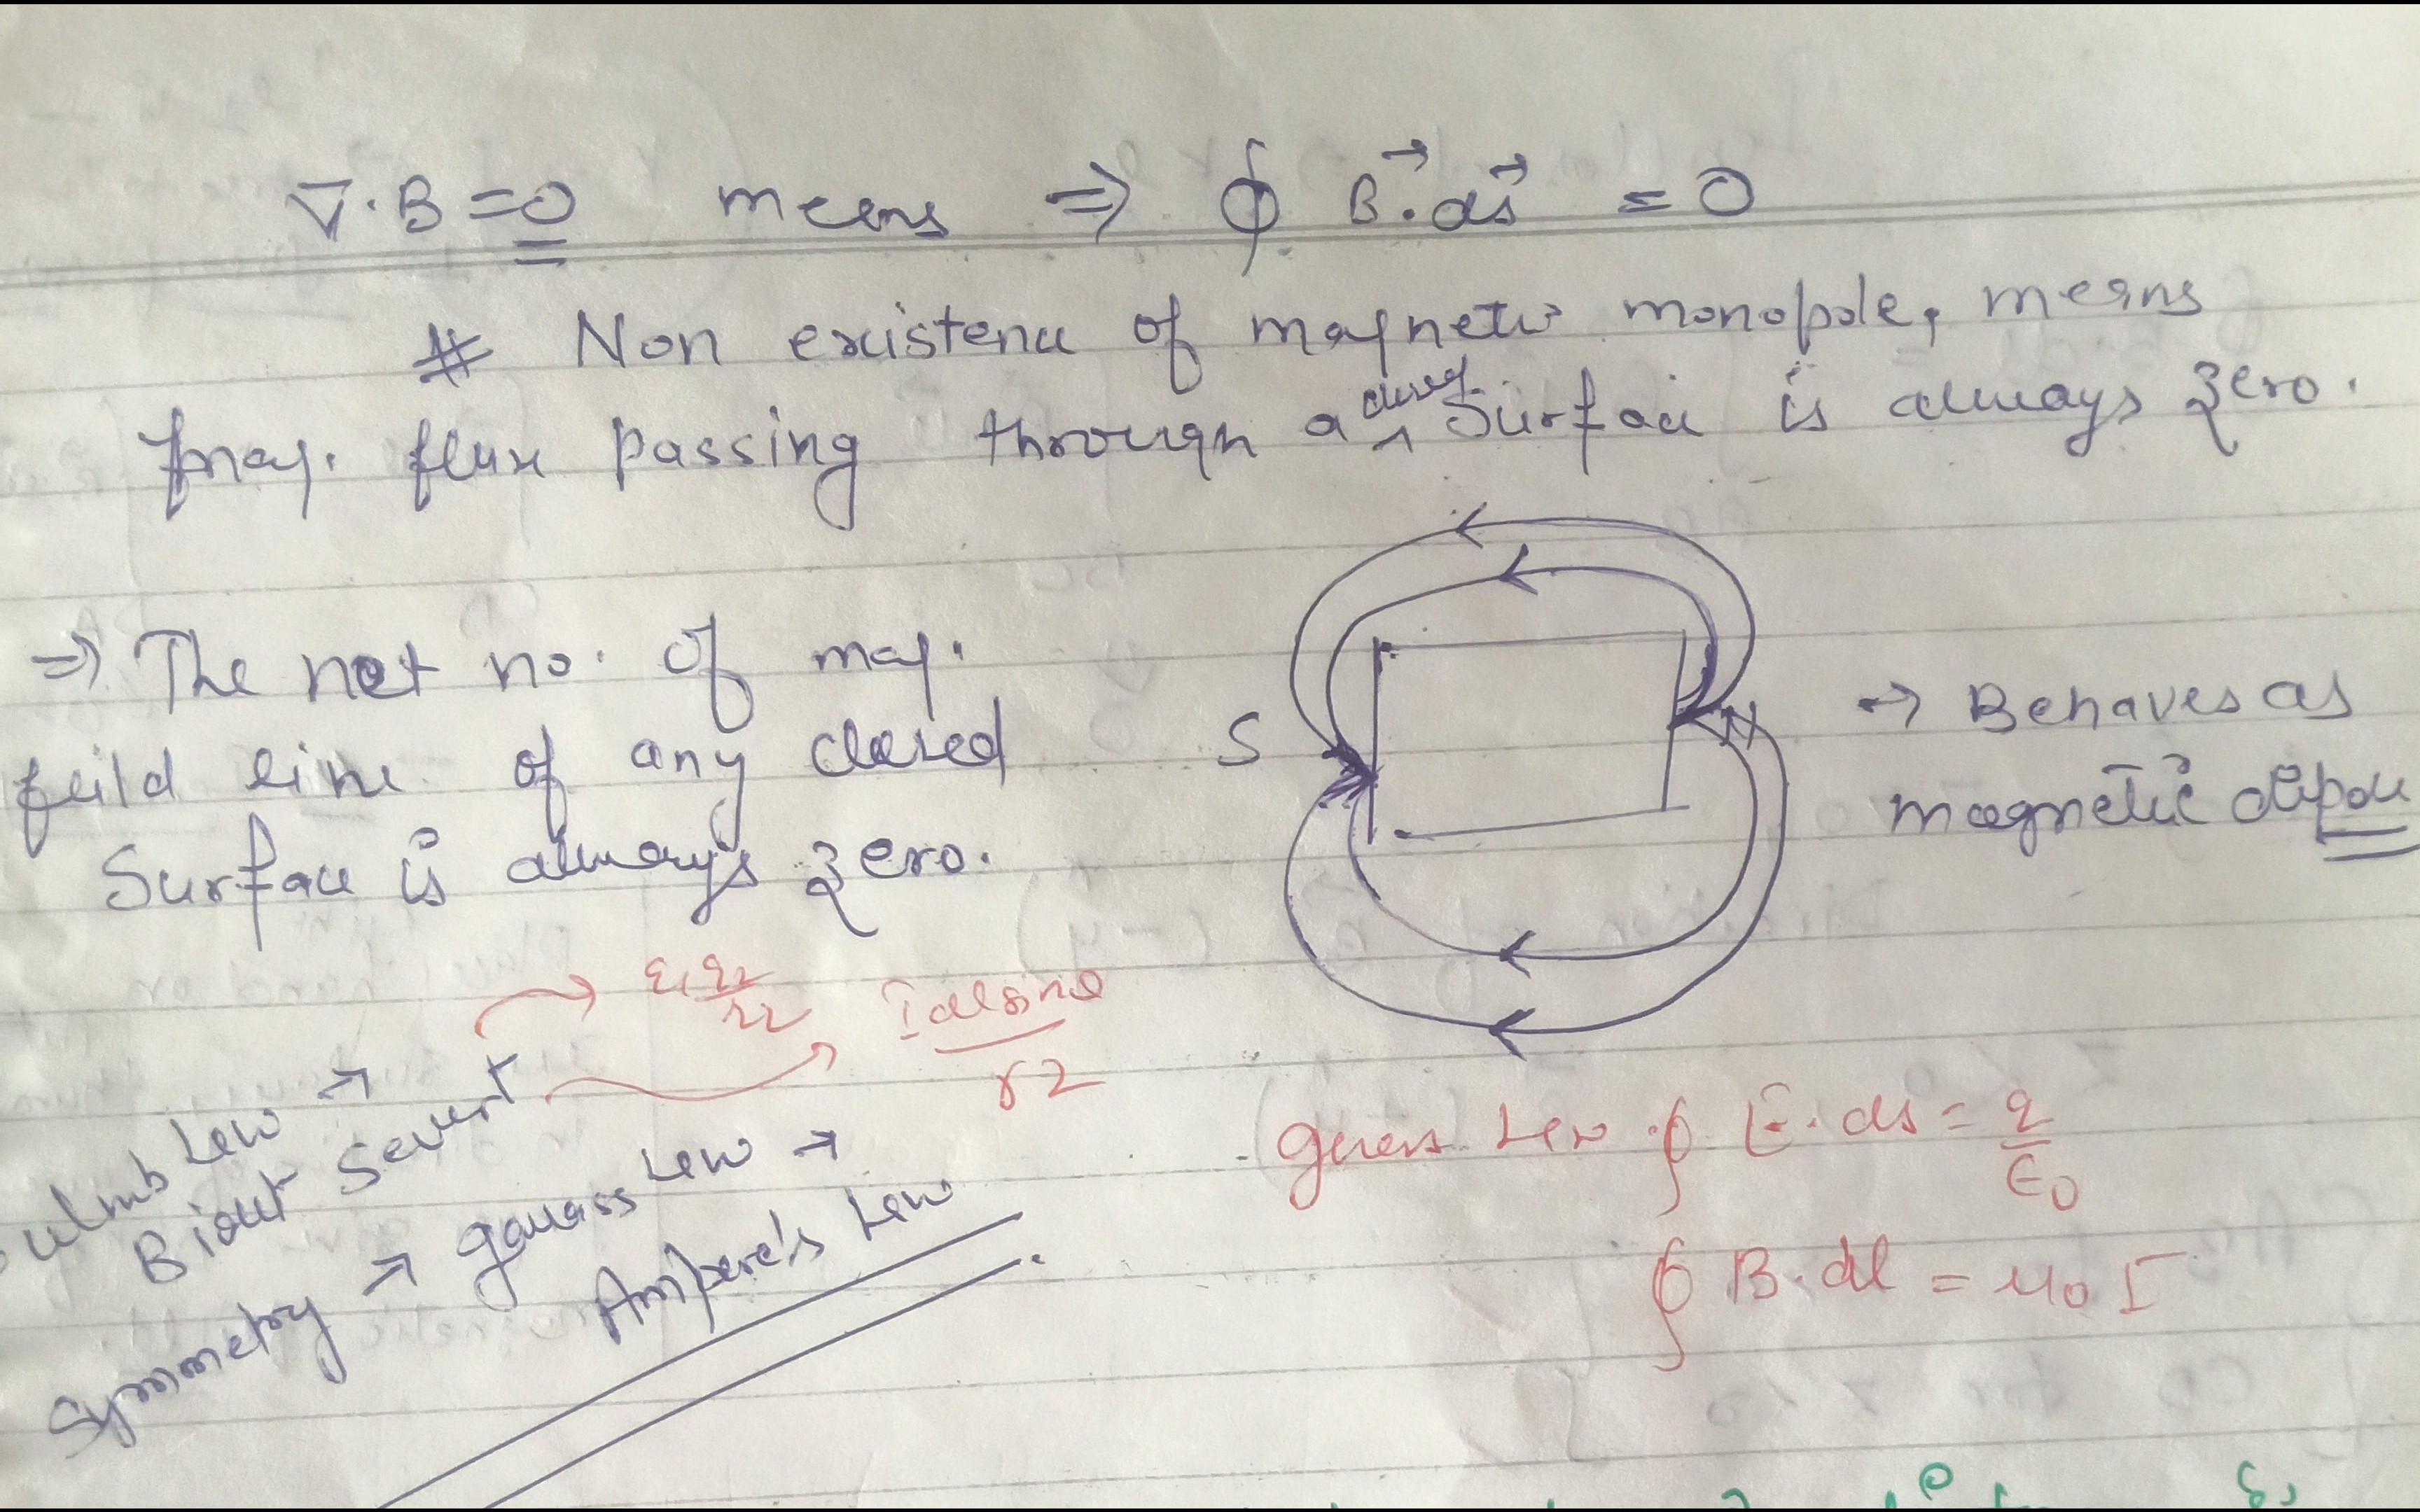 ∇·B = 0 means ⇒ ∮ B⃗·ds⃗ = 0
# Non existence of magnetic monopole, means
mag. flux passing through a closed surface is always zero.
⇒ The net no. of mag.
feild line of any closed
Surface is always zero.
S N
→ Behaves as
magnetic dipole
q1q2/r2
Idlsinθ/r2
Law →
Biout Savert
Symmetry → gauass Law →
Ampere's Law
Guass Law ∮ E·ds = q/ϵ0
∮ B·dl = μ0 I